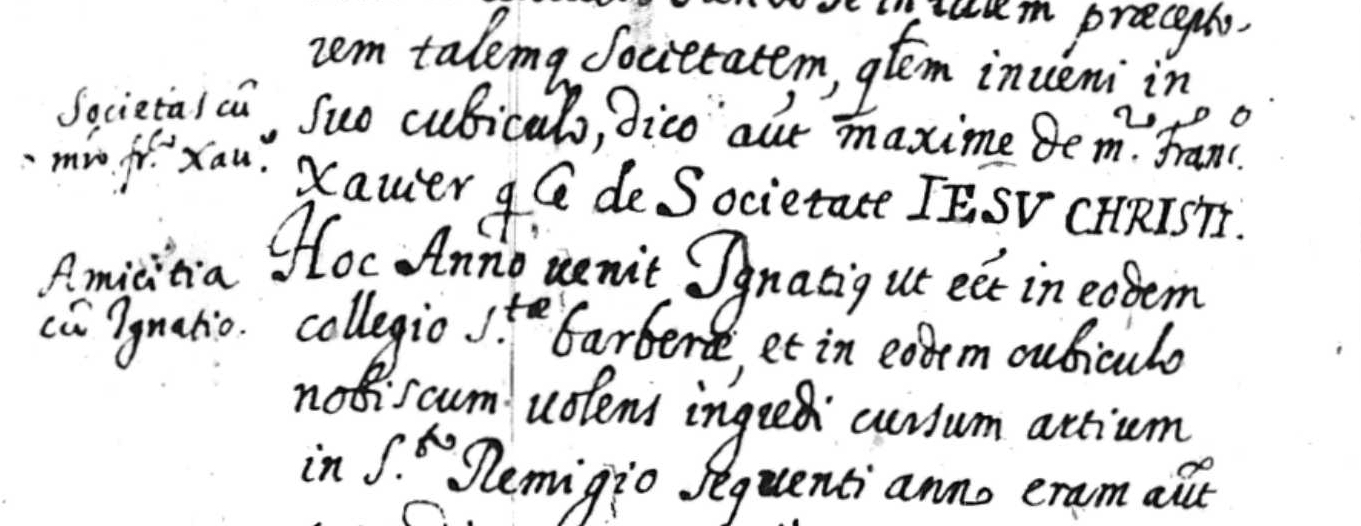 in talem præcepto-
rem talemq Societatem, qlem inueni in
suo cubiculo, dico aut maxime de m.ro Franc.o
Xauier q e de Societate IESV CHRISTI.
Hoc Anno uenit Ignatiq ut eet in eodem
collegio S.tæ barberæ, et in eodem cubiculo
nobiscum uolens ingredi cursum artium
in S.to Remigio sequenti anno eram aut
Societas cū
mro fr.co Xau.o
Amicitia
cū Ignatio.